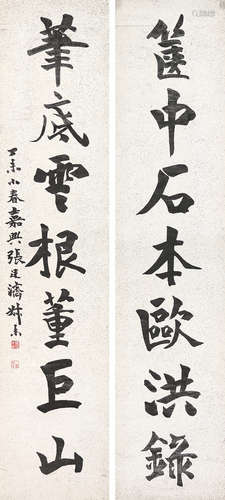 箧中石本歐洪錄
筆底雲根董巨山
丁未小春嘉興張廷濟叔未